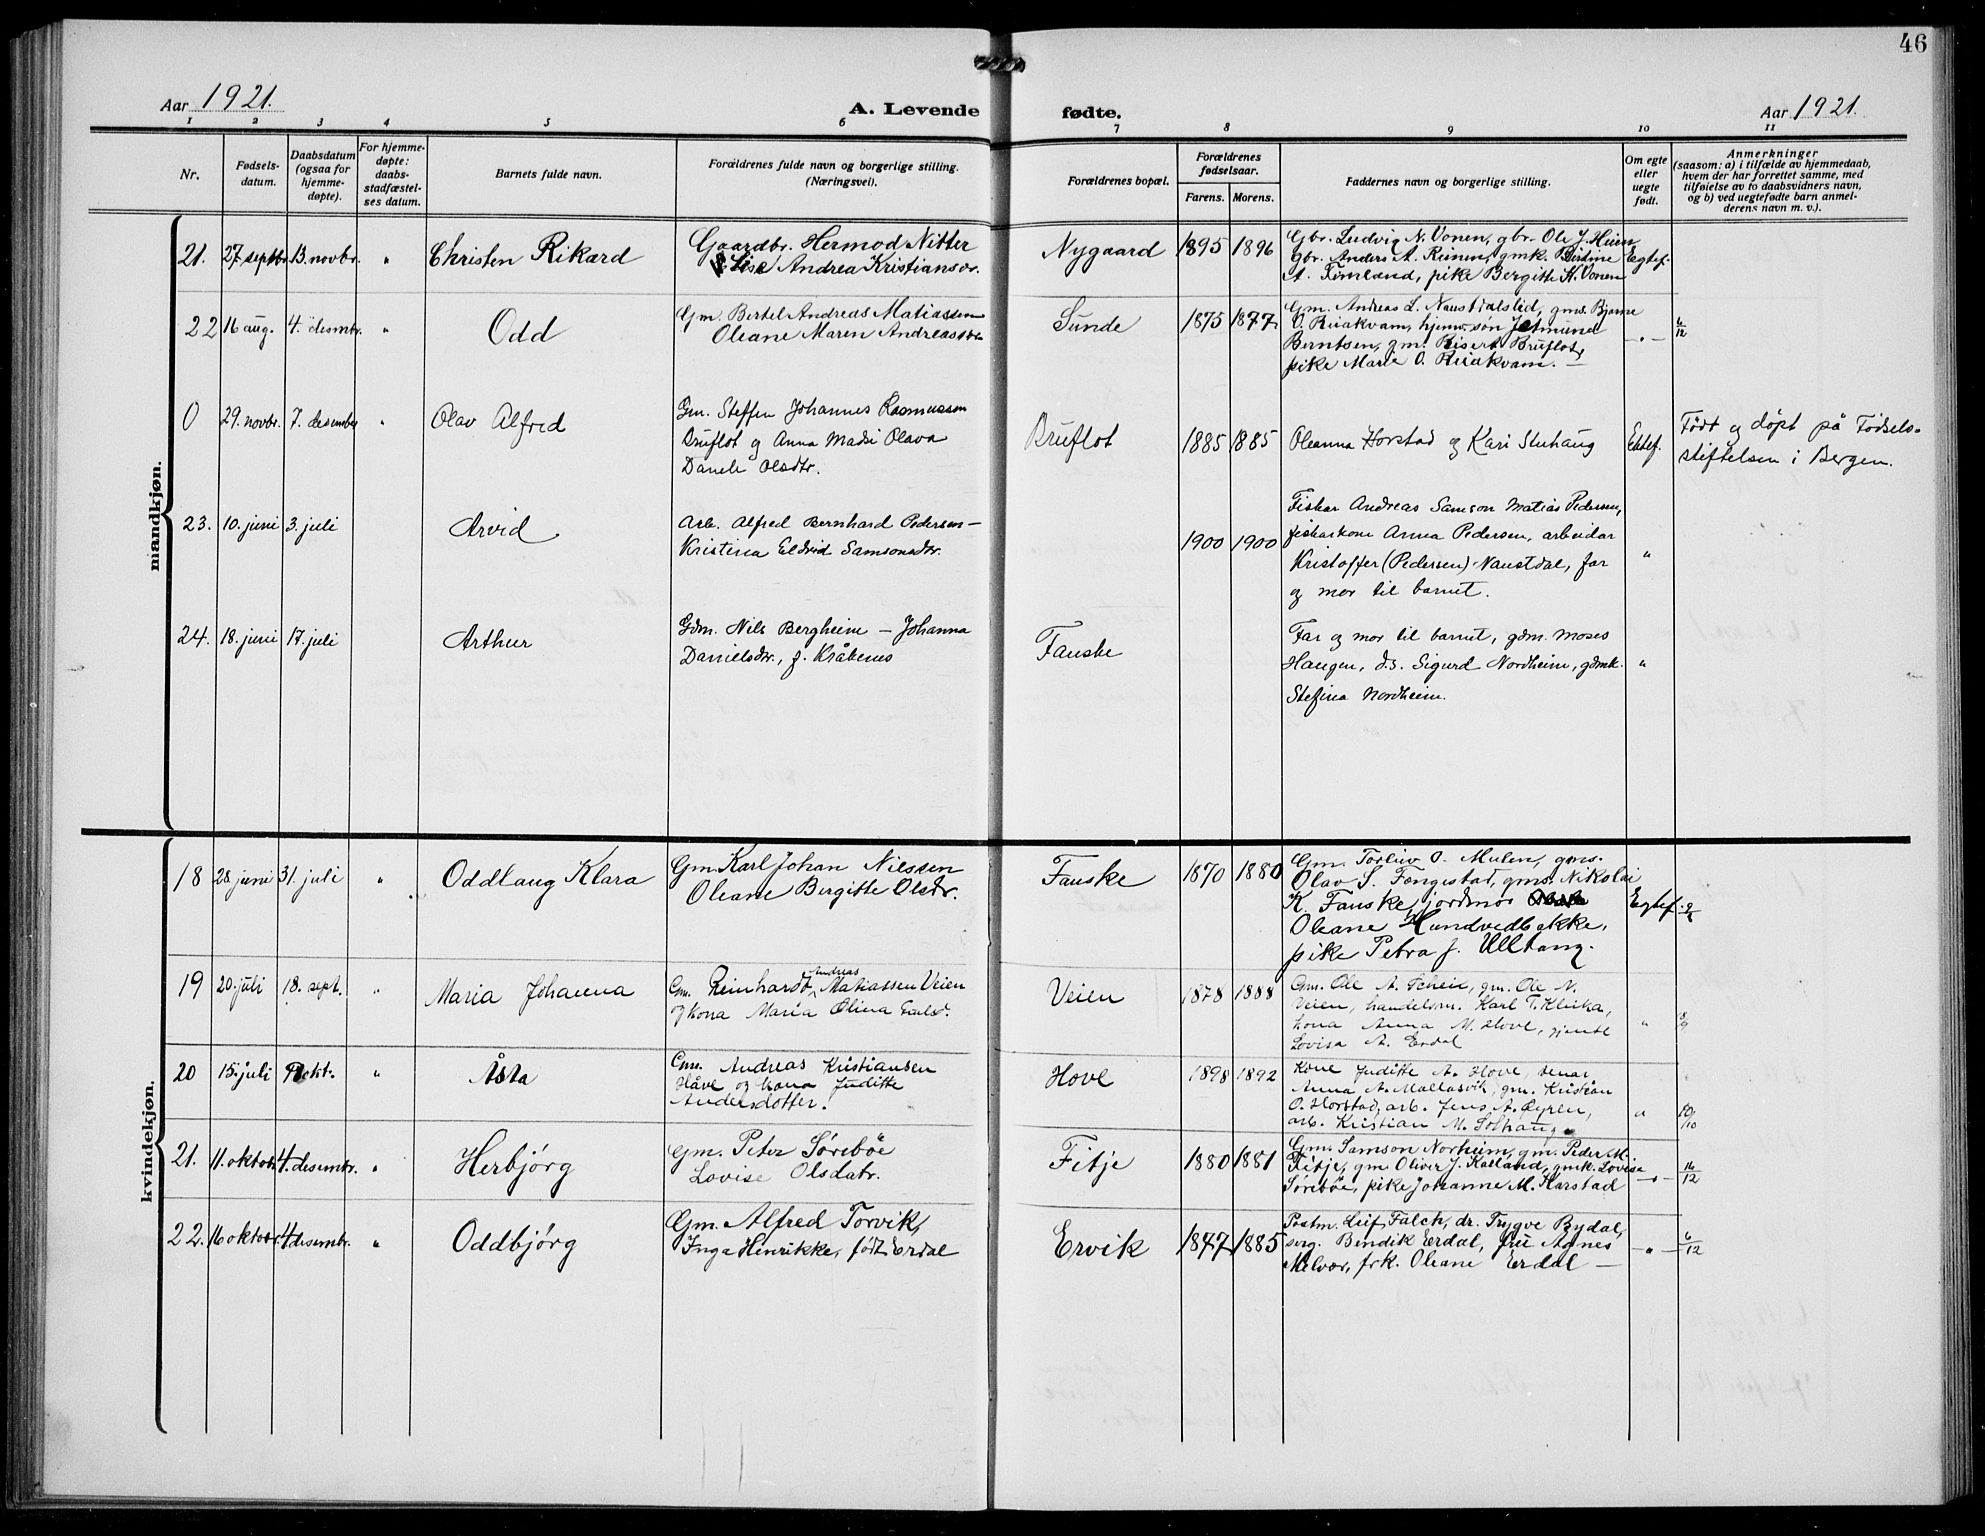 46
Aar 1921. A. Levende fødte. Aar 1921.
1 2 3 4 5 6 7 8 9 10 11
Nr.
Fødsels-
datum.
Daabsdatum
(ogsaa for
hjemme-
døpte).
For hjemme-
døpte:
daabs-
stadfæstel-
ses datum.
Barnets fulde navn.
Forældrenes fulde navn og borgerlige stilling.
(Næringsvei).
Forældrenes bopæl.
Forældrenes
fødselsaar.
Farens. Morens.
Faddernes navn og borgerlige stilling.
Om egte
eller
uegte
født.
Anmerkninger
(saasom: a) i tilfælde av hjemmedaab,
hvem der har forrettet samme, med
tilføielse av to daabsvidners navn,
og b) ved uegtefødte barn anmel-
derens navn m. v.).
mandkjøn.
21. 27 septbr. 13. novbr. " Christen Rikard
Gaardbr. Hermod Nitter
Lise Andrea Kristiansdr.
Nygaard 1895 1896
Gbr. Ludvig N. Vonen, gbr. Ole J. Heien
Gbr. Anders A. Reinen, gmk. Bertine
A. Timland, pike Bergitte H. Vonen
Egtef.
22 16 aug. 4. desmbr. " Odd
Gm. Bertel Andreas Matiassen
Oleane Maren Andreasdtr
Sunde 1875 1877
Gm. Andreas L. Naustdalslid, gms. Bjarne
O. Riiakvam, hjemv. søn Jetmund
Berntsen, gm. Risert Bruflot,
pike Marie O. Riiakvam. —
— " — 6/12
0 29. novbr. 7. desember " Olav Alfred
Gm. Steffen Johannes Rasmussen
Bruflot og Anna Madsi Olava
Danele Olsdtr.
Bruflot 1885 1885
Oleanna Horstad og Kari Stuhaug
Ektef.
Født og døpt på Fødsels-
stiftelsen i Bergen.
23. 10. juni 3. juli Arvid
Arb. Alfred Bernhard Pedersen —
Kristina Eldrid Samsonsdtr.
1900 1900
Fiskar Andreas Samson Matias Pedersen,
fiskarkone Anna Pedersen, arbeidar
Kristoffer (Pedersen) Naustdal, far
og mor til barnet.
"
24. 18. juni 17. juli Arthur
Gdm. Nils Bergheim — Johanna
Danielsdtr., f. Kråkenes
Fauske
Far og mor til barnet, gdm. Moses
Haugen, d.s. Sigurd Nordheim, gdmk.
Stefina Nordheim.
"
kvindekjøn.
18 28 juni 31. juli " Oddlaug Klara
Gm. Karl Johan Nilssen
Oleane Bergitte Olsdr.
Fauske 1870 1880
Gm. Torleiv O. Mulen, gms.
Olav S. Fongestad, gms. Nikolai
K. Fauske, jordmor
Oleane Hundvedbakke,
pike Petra J. Ulltang.
Egtef.
19 20. juli 18. sept. " Maria Johanna
Gm. Reinhardt Andreas Matiassen Veien
og kona Maria Olina
Veien 1878 1888
Gm. Ole A. Scheie, gm. Ole N.
Veien, handelsm. Karl T. Klicka,
kona Anna M. Hove, gjente
Lovisa A. Erdal
" 18/9
20 15. juli 9 okt. " Åsta
Gm. Andreas Kristiansen
Håve og kona Juditte
Andersdotter.
Hove 1898 1892
Kone Juditte A. Hove, tenar
Anna A. Mallasvik, gm. Kristian
O. Horstad, arb. Jens A. Øyren,
arb. Kristian M. Solhaug.
" 10/10
21. 11. oktob. 4. desembr. " Herbjørg
Gm. Peter Sørebøe
Lovise Olsdatr.
Fitje 1880 1881
Gm. Samson Norheim, gm. Peder M.
Fitje, gm Oliver J. Kalland, gmk. Lovise
Sørebøe, pike Johanne M. Harstad
— " — 14/12
22. 16 oktobr. 4 desembr. " Oddbjørg
Gm. Alfred Torvik,
Inga Henrikke, født Erdal
Ervik 1847 1885
Postm. Leif Falch, dr. Trygve Bydal,
serg. Bendik Erdal, fru Agnes
Melvær, frk. Oleane Erdal —
— " — 6/12